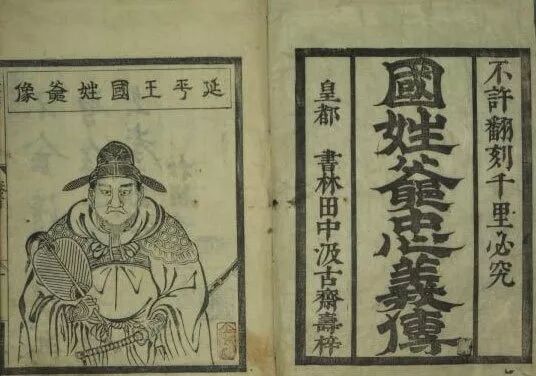 不許翻刻千里必究
國姓爺忠義傳
皇都 書林田中汲古齋壽梓
延平王國姓爺像